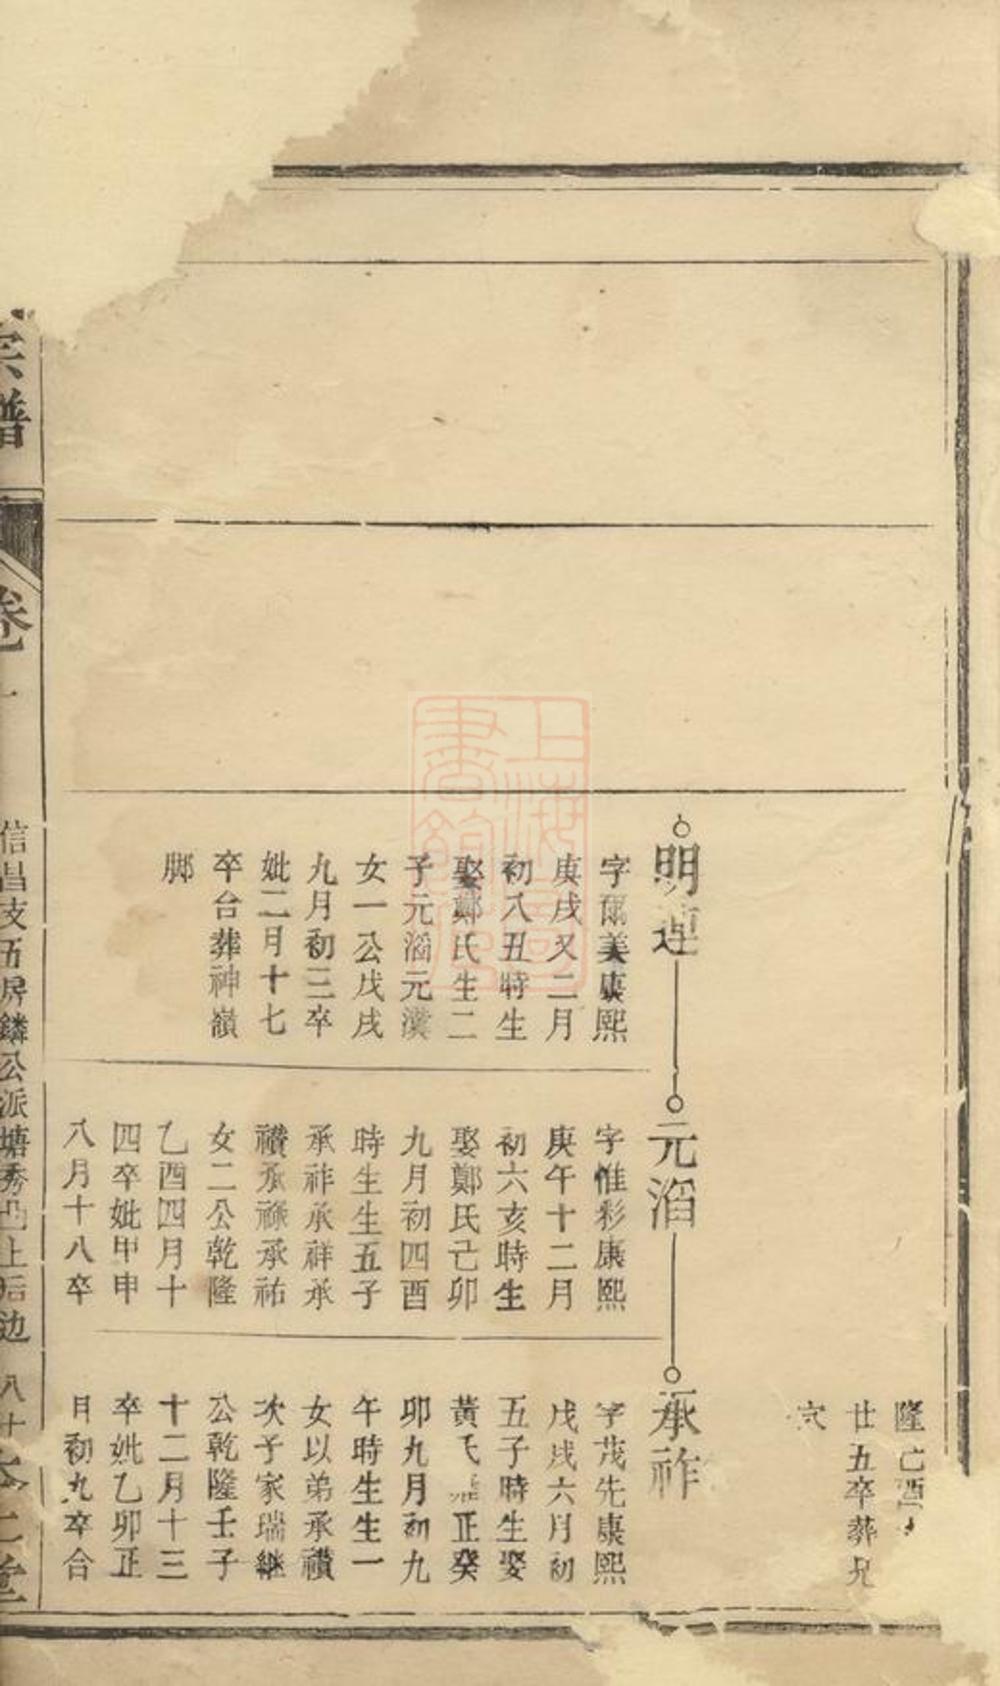 隆己酉
廿五卒葬兄
穴
明連
字爾美康熙
庚戌又二月
初八丑時生
娶鄭氏生二
子元滔元瀵
女一公戊戌
九月初三卒
妣二月十七
卒合葬神嶺
脚
元滔
字惟彩康熙
庚午十二月
初六亥時生
娶鄭氏己卯
九月初四酉
時生生五子
承祚承祥承
禶承祿承祐
女二公乾隆
乙酉四月十
四卒妣甲申
八月十八卒
承祚
字茂先康熙
戊戌六月初
五子時生娶
黃氏雍正癸
卯九月初九
午時生生一
女以弟承禶
次子家瑞継
公乾隆壬子
十二月十三
卒妣乙卯正
月初九卒合
宗譜
卷
信昌支五房鏻公派塘秀凸上后边
八十
堂
上海圖書館藏